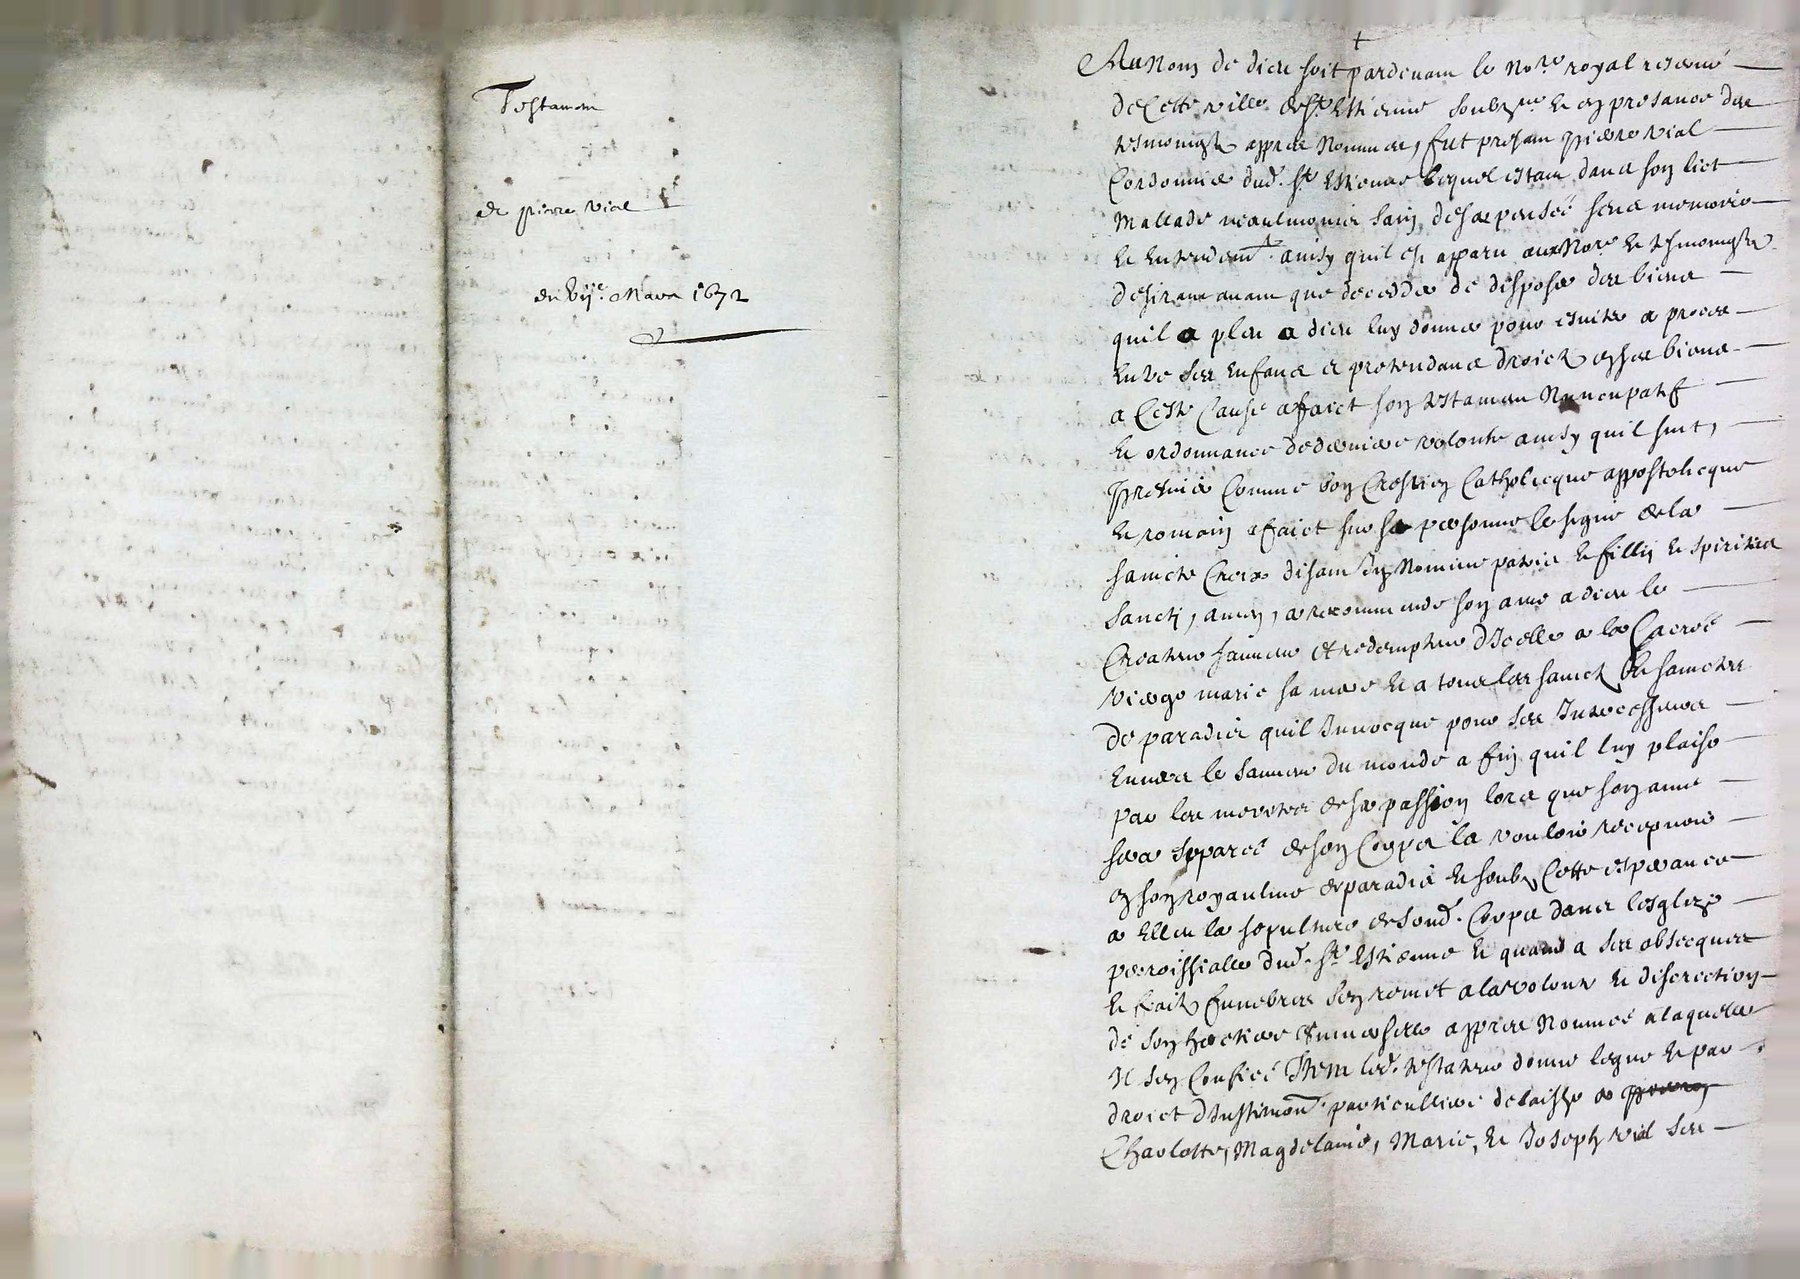 Testament
de pierre vial
du vije Mars 1672
Au Nom de dieu soit pardevant le Nore royal reservé
de Cette ville de St Estienne soubzné et en presance des
tesmoingtz appres Nommes, fut present pierre vial
Cordonnier dud. St Estienne lequel estant dans son lict
Mallade neaulmoings sain de sa pensée sens memoire
et entendemt. ainsy quil est apparu aux Nore et tesmoingtz
desirant avant que decedder de disposer des biens
quil a pleu a dieu luy donner pour esviter a proces
entre ses enfans et pretendans droictz en ses biens
a Ceste Cause a faict son testament Nuncupatif
et ordonnance de derniere volonte ainsy quil suit,
premier Comme bon Chrestien Catholicque appostolicque
et romain a faict sur sa personne le signe de la
saincte Croix disant In Nomine patris et fillij et spiritus
sancti, amen, a recommandé son ame a dieu le
Createur sauveur et redempteur d'Icelle a la Sacrée
vierge marie sa mere et a tous les sainctz et sainctes
de paradis quil Invocque pour ses Intercesseurs
envers le sauveur du monde a fin quil luy plaise
par les merites de sa passion lors que son ame
sera separée de son Corps la vouloir recepvoir
en son royaulme de paradis et soubz Cette esperance
a Elleu la sepulture de sond. Corps dans lesglize
parroissialle dud. St Estienne et quand a ses obsecques
et fraiz funebres sen remet a la volonte et discrection
de son heretiere universelle appres Nommée a laquelle
Il sen Confie Item led. testateur donne legue et par
droict d'Institution particulliere delaisse a
Charlotte, Magdelaine, Marie, et Joseph vial ses